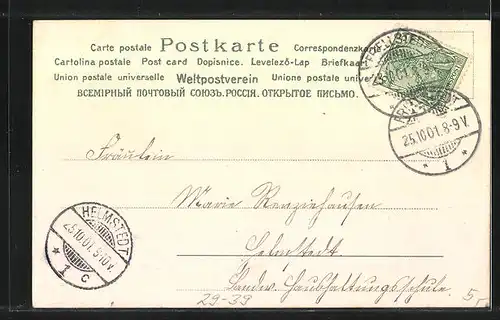 Carte postale Postkarte Correspondenzkarte
Cartolina postale Post card Dopisnice. Levelező-Lap Briefkaart
Union postale universelle Weltpostverein Unione postale unive
ВСЕМІРНЫЙ ПОЧТОВЫЙ СОЮЗЪ. РОССІЯ. ОТКРЫТОЕ ПИСЬМО.
25.10.01. 8-9 V.
1
Fräulein
Marie Renziehausen
HELMSTEDT
25.10.01. 9-10 V.
1 c
Helmstedt
Landw. Haushaltungsschule
29-39
5